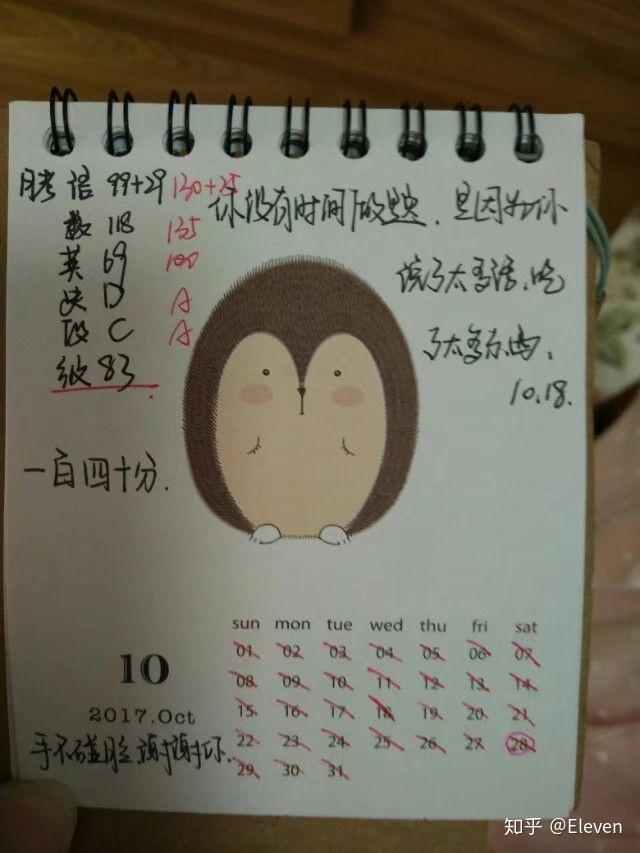 月考 语 99+29 130+25
数 118 135
英 69 100
史 D A
政 C A
级 83
一百四十分.
你没有时间做题, 是因为你
说了太多话、吃
了太多东西、
10.18.
sun mon tue wed thu fri sat
01 02 03 04 05 06 07
08 09 10 11 12 13 14
15 16 17 18 19 20 21
22 23 24 25 26 27 28
29 30 31
10
2017.Oct
手不碰脸 谢谢你.
知乎 @Eleven